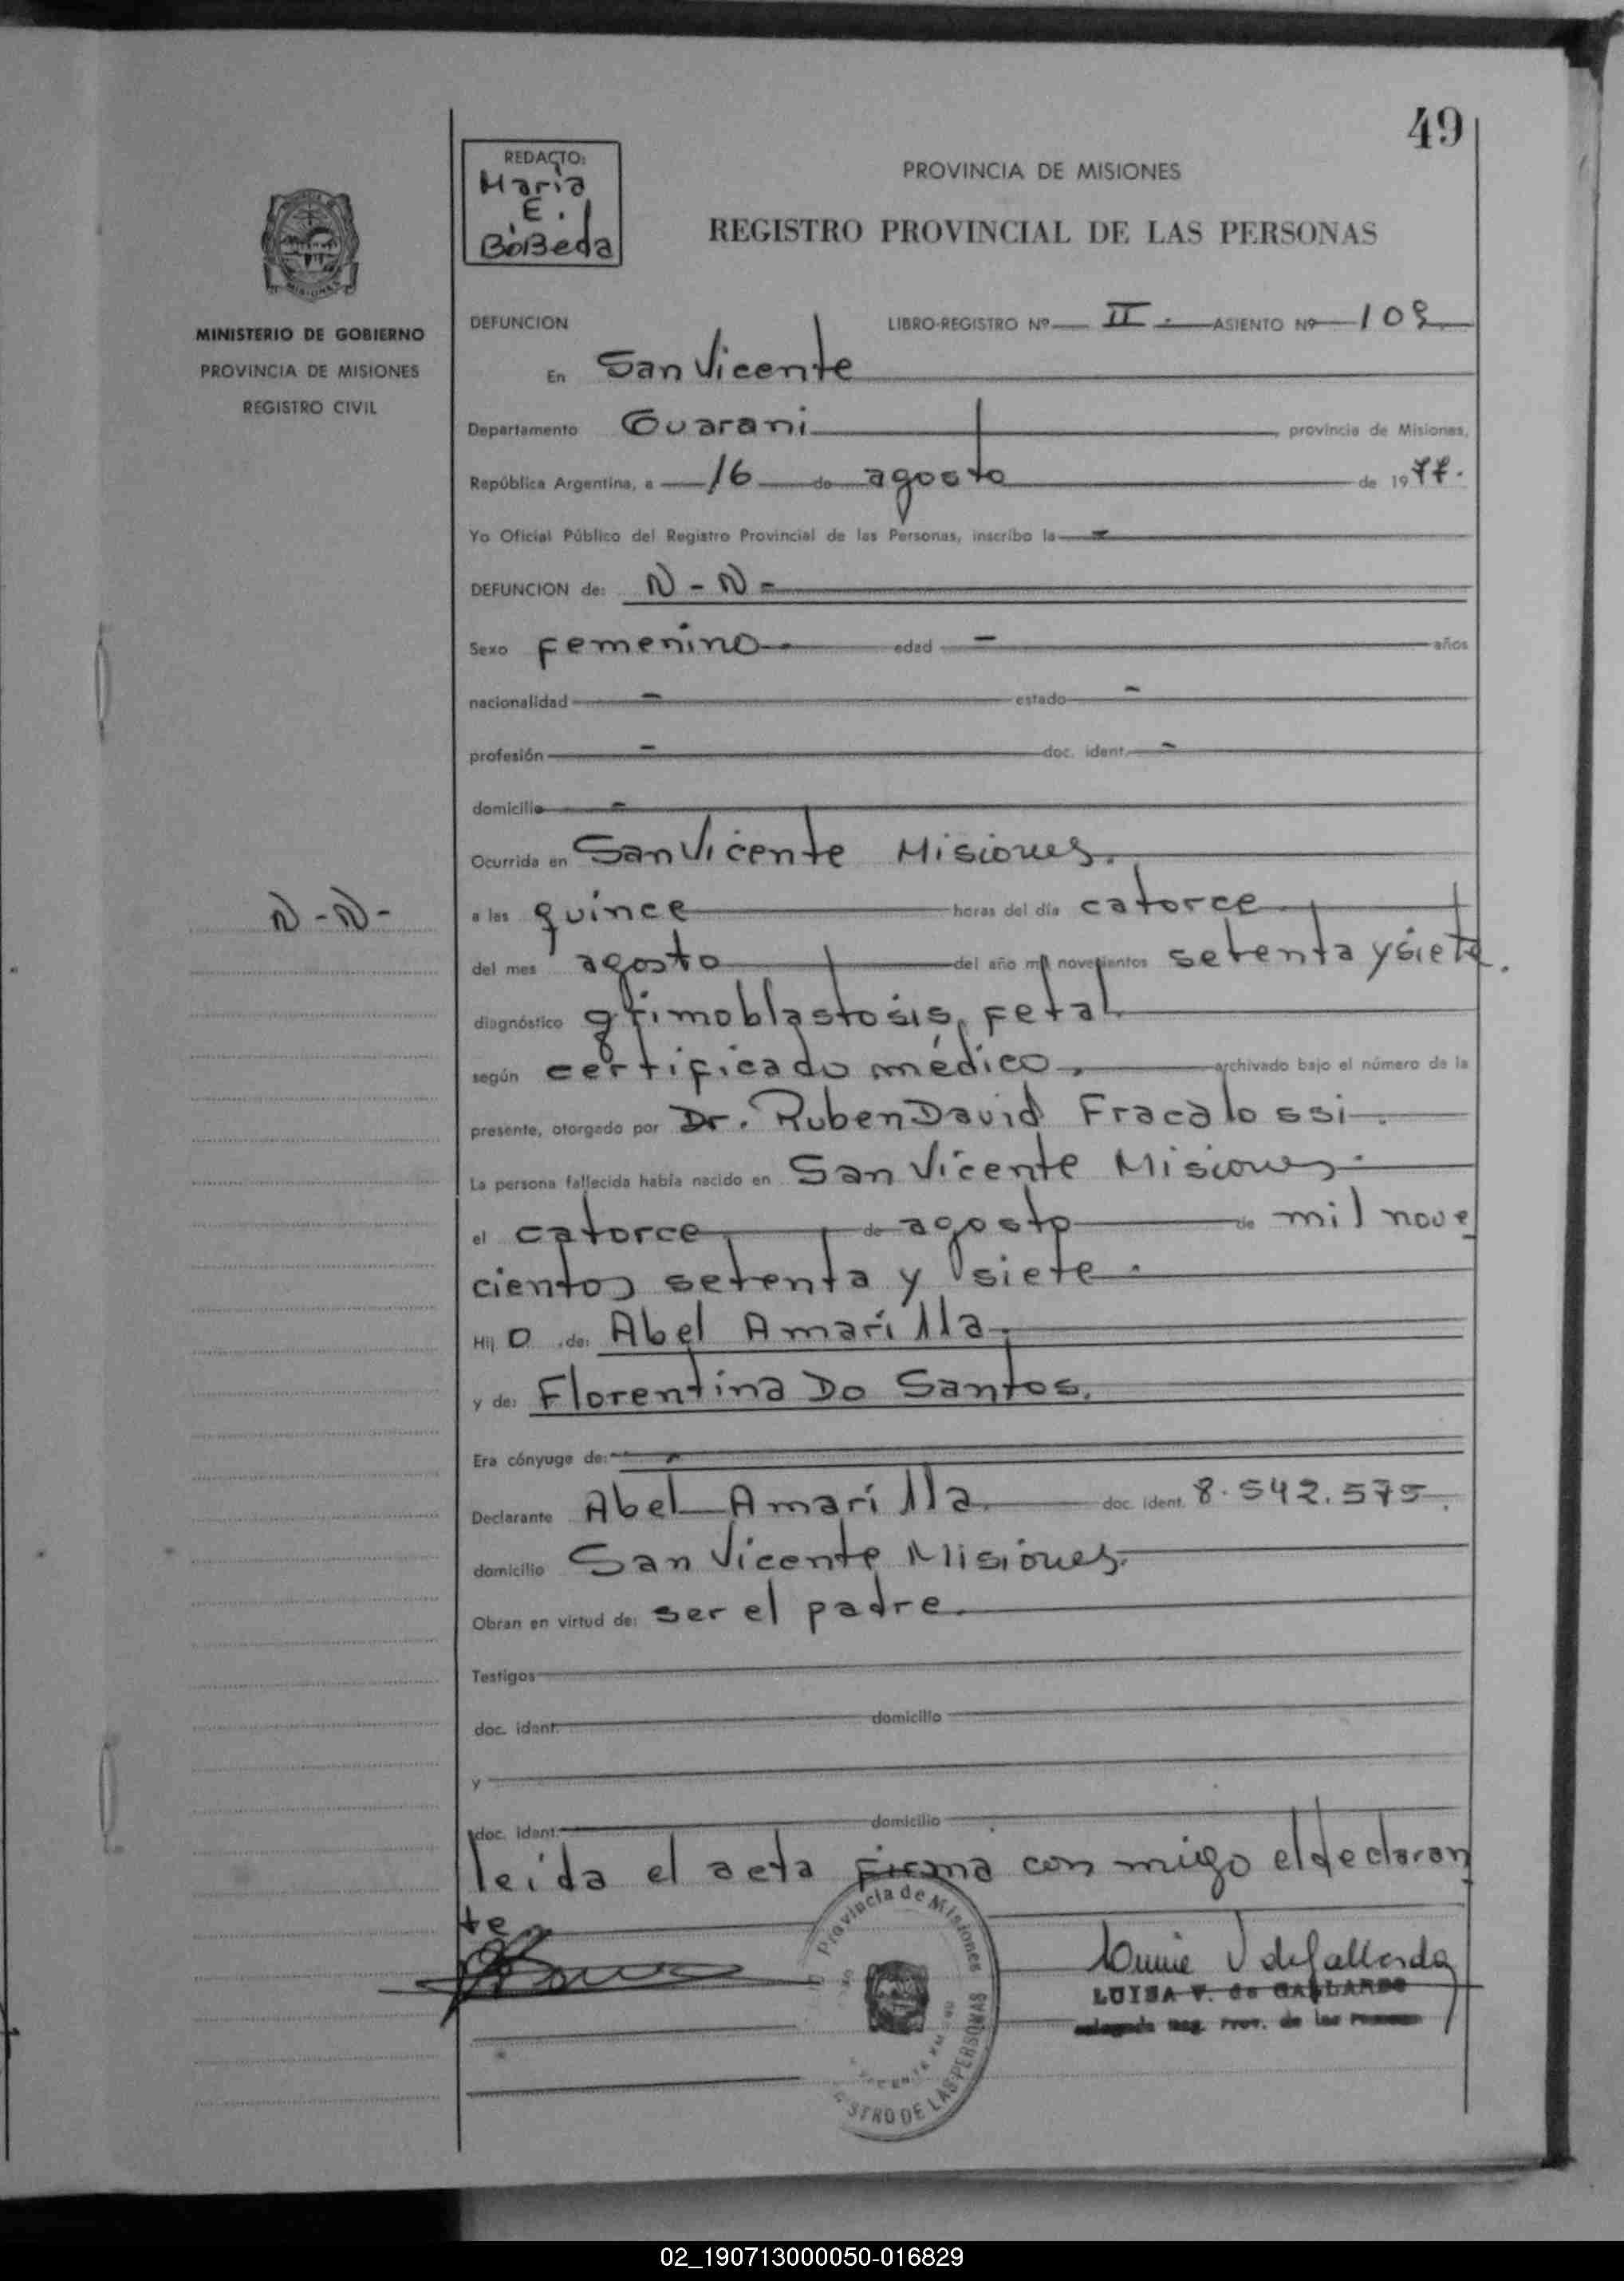 49
REDACTO:
Maria
E.
BóBeda
PROVINCIA DE MISIONES
REGISTRO PROVINCIAL DE LAS PERSONAS
MISIONES
MINISTERIO DE GOBIERNO
PROVINCIA DE MISIONES
REGISTRO CIVIL
DEFUNCION LIBRO-REGISTRO Nº II. ASIENTO Nº 109
En San Vicente
Departamento Guarani provincia de Misiones,
República Argentina, a 16 de agosto de 1977.
Yo Oficial Público del Registro Provincial de las Personas, inscribo la
DEFUNCION de: N-N-
Sexo femenino- edad - años
nacionalidad - estado -
profesión - doc. ident. -
domicilio -
Ocurrida en San Vicente Misiones.
N-N-
a las quince horas del día catorce
del mes agosto del año mil novecientos setenta y siete.
diagnóstico fetal
según certificado médico, archivado bajo el número de la
presente, otorgado por Dr. Ruben David Fracalossi.
La persona fallecida había nacido en San Vicente Misiones.
el catorce de agosto de mil nove
cientos setenta y siete.
Hij o de: Abel Amarilla.
y de: Florentina Do Santos.
Era cónyuge de: -
Declarante Abel Amarilla. doc. ident. 8.542.575.
domicilio San Vicente Misiones.
Obran en virtud de: ser el padre.
Testigos
doc. ident. domicilio
y
doc. ident. domicilio
leída el acta firma con migo el declaran
te
Provincia de Misiones
STRO DE LAS PERSONAS
LUISA V. de GALLARDO
Reg. Prov. de las
02_190713000050-016829